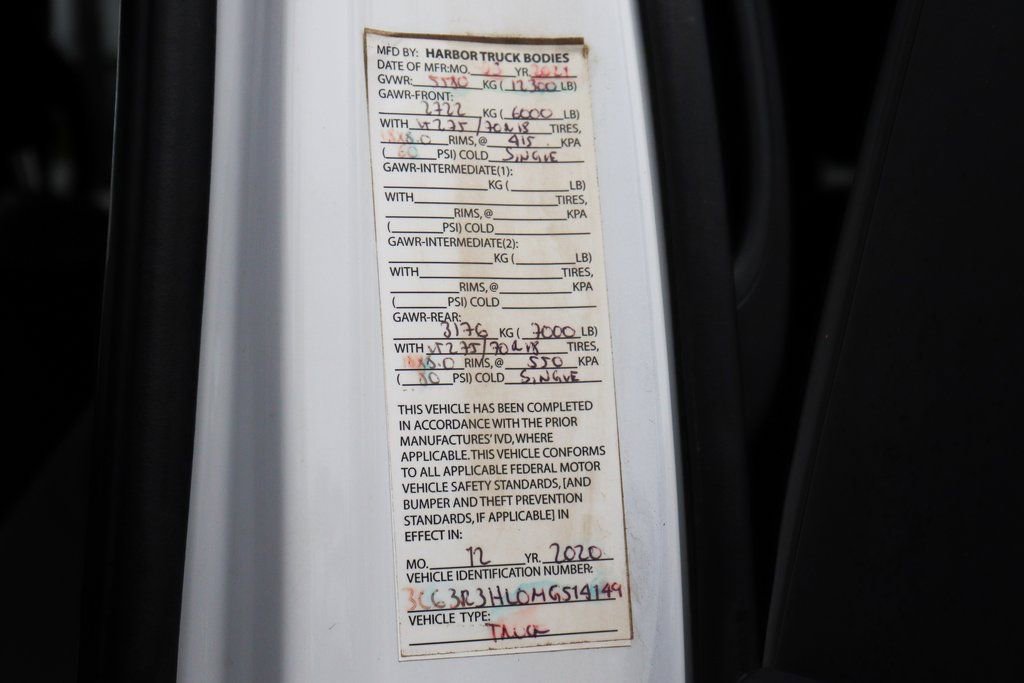 MFD BY: HARBOR TRUCK BODIES
DATE OF MFR:MO. YR. 2021
GVWR: 5580 KG ( 12300 LB)
GAWR-FRONT:
2722 KG ( 6000 LB)
WITH LT275/70R18 TIRES,
RIMS, @ 415 KPA
( 60 PSI) COLD SINGLE
GAWR-INTERMEDIATE(1):
KG ( LB)
WITH TIRES,
RIMS, @ KPA
( PSI) COLD
GAWR-INTERMEDIATE(2):
KG ( LB)
WITH TIRES,
RIMS, @ KPA
( PSI) COLD
GAWR-REAR:
3176 KG ( 7000 LB)
WITH LT275/70R18 TIRES,
RIMS, @ 550 KPA
( 80 PSI) COLD SINGLE
THIS VEHICLE HAS BEEN COMPLETED
IN ACCORDANCE WITH THE PRIOR
MANUFACTURES' IVD, WHERE
APPLICABLE. THIS VEHICLE CONFORMS
TO ALL APPLICABLE FEDERAL MOTOR
VEHICLE SAFETY STANDARDS, [AND
BUMPER AND THEFT PREVENTION
STANDARDS, IF APPLICABLE] IN
EFFECT IN:
MO. 12 YR. 2020
VEHICLE IDENTIFICATION NUMBER:
3C63R3HL0MG514149
VEHICLE TYPE:
TRUCK